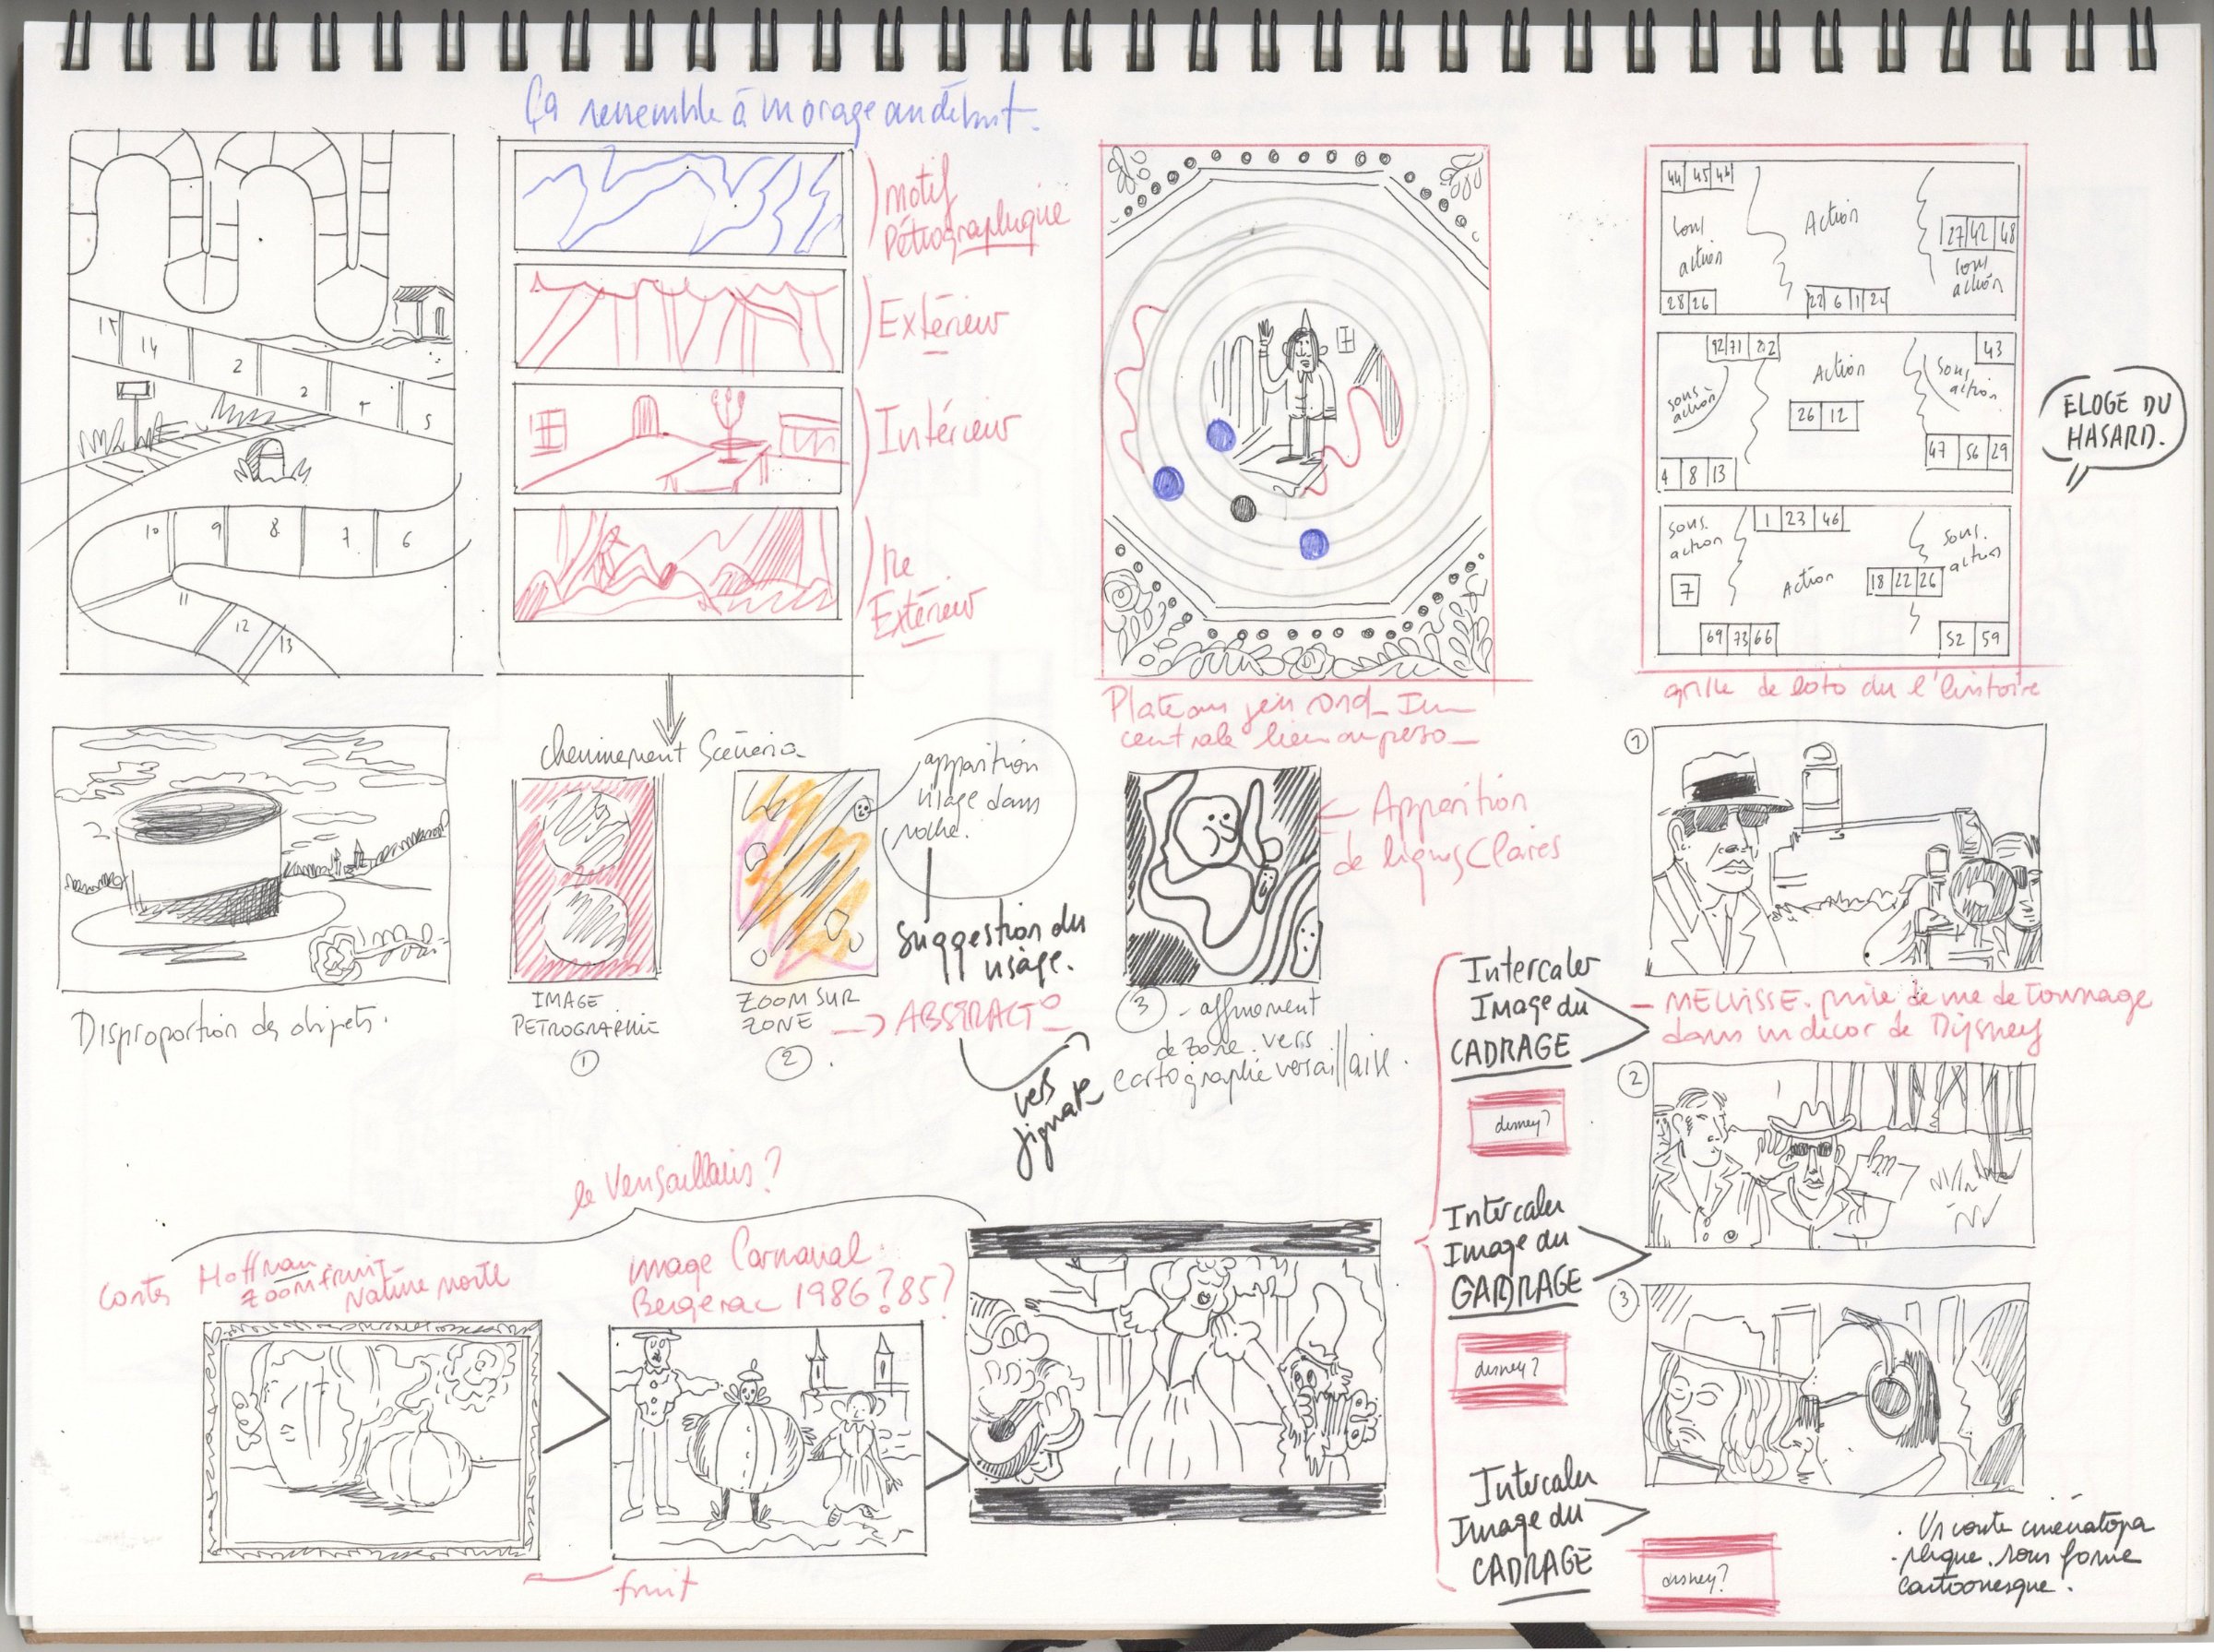 Ça ressemble à un orage au début.
Motif
Pétrographique
Extérieur
Intérieur
Re
Extérieur
15 14 2 2 4 5
10 9 8 7 6
11 12 13
44 45 46
sous
action
Action
27 42 48
sous
action
28 26
22 6 1 24
92 71 82
43
sous
action
Action
sous
action
26 12
47 56 29
4 8 13
sous.
action
1 23 46
sous.
action
7
Action
18 22 26
69 73 66
52 59
ELOGE DU
HASARD.
grille de loto du l'histoire
Plateau jeu rond_
centrale lieu ou perso_
Cheminement Scénario
apparition
visage dans
roche.
Suggestion du
visage.
IMAGE
PETROGRAPHIE
1
ZOOM SUR
ZONE
2
-> ABSTRACTO
vers
figurate
<- Apparition
de lignes Claires
3 - affinement
de zone vers
cartographie versaillaise.
Disproportion des objets.
Intercaler
Image du
CADRAGE
disney?
Intercaler
Image du
CADRAGE
disney?
Intercaler
Image du
CADRAGE
disney?
1
- MELVISSE. prise de vue de tournage
dans un décor de Dijsney
2
3
. Un conte cinématogra
. phique. sous forme
cartoonesque.
le Versaillais?
contes Hoffman
zoom fruit_
Nature morte
image Carnaval
Bergerac 1986? 85?
fruit